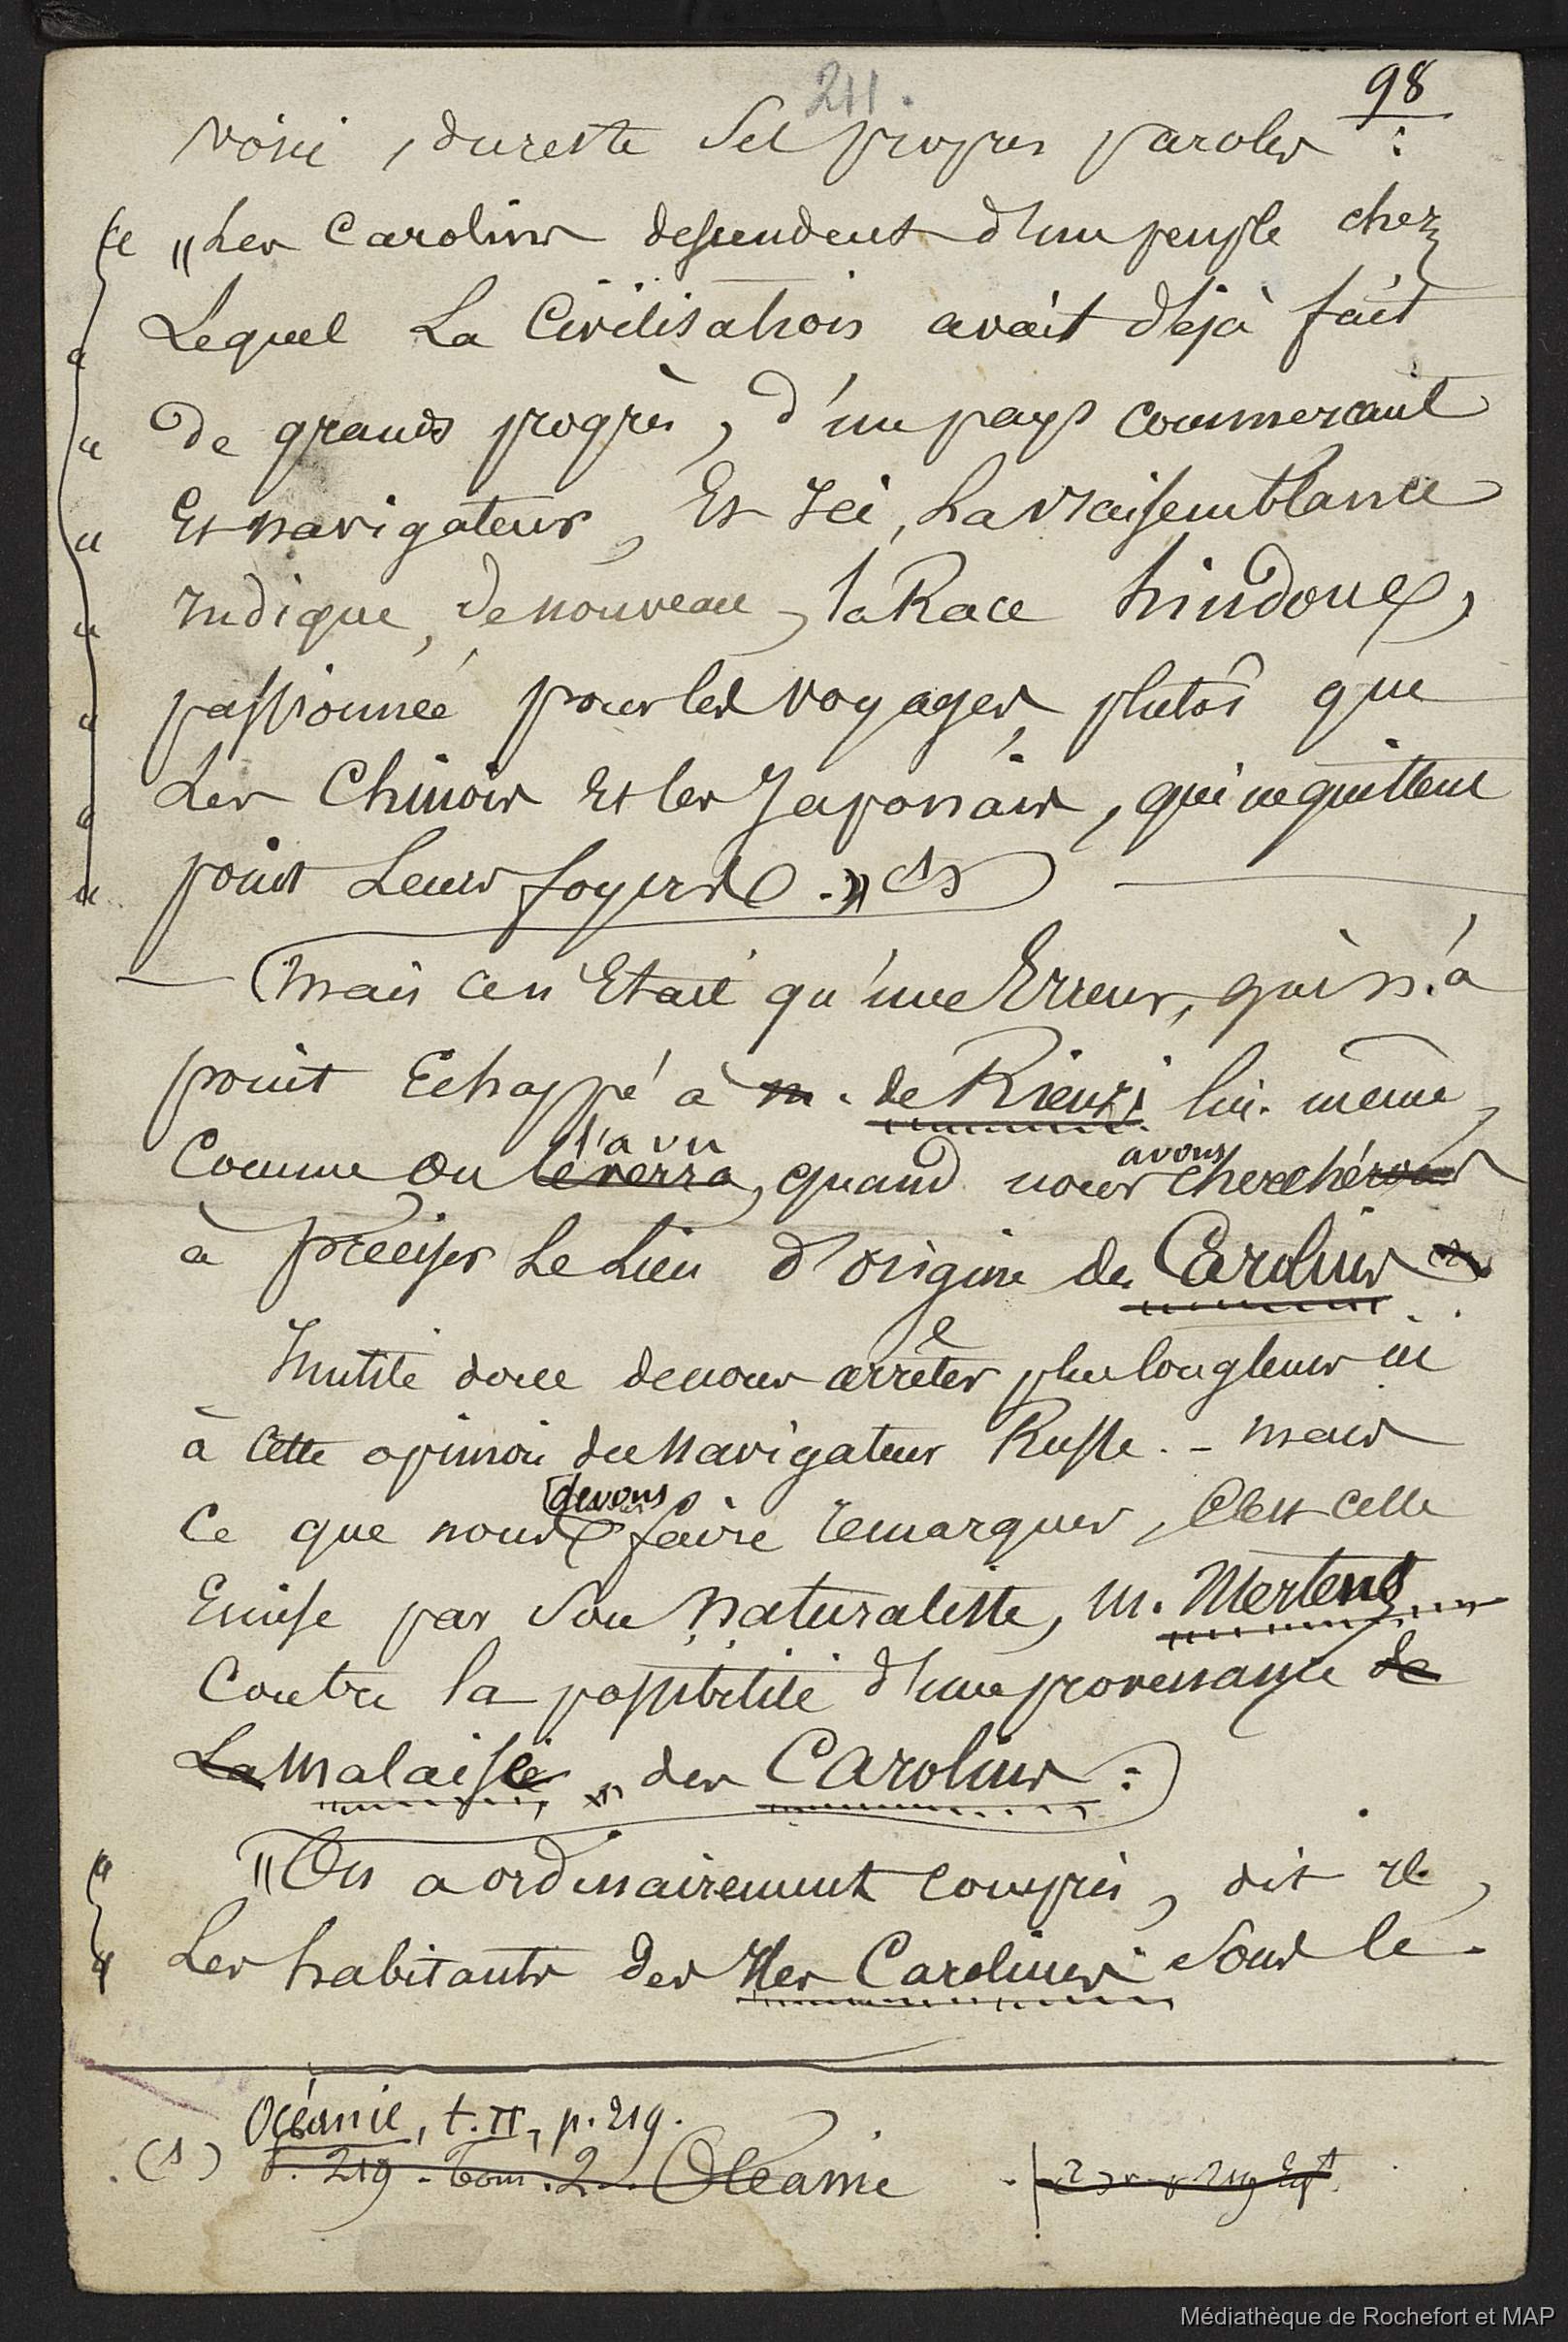 211.
98
voici, du reste ses propres paroles :
"Les Carolins descendent d'un peuple chez
Lequel La Civilisation avait déjà fait
de grands progrès, d'un pays commerçant
Et navigateur, Et Ici, La vraisemblance
Indique, de nouveau, la Race hindoue,
passionnée pour les voyages, plutôt que
Les Chinois Et les Japonais, qui ne quittent
point Leurs foyers." (1)
— Mais ce n'Etait qu'une Erreur, qui n'a
point Echappé à m. de Rienzi lui-même,
l'a vu
avons
Comme on le verra, quand nous cherchérons
à préciser Le Lieu d'origine des Carolins
Inutile donc de nous arrêter plus longtems ici
à cette opinion du Navigateur Russe. - mais
devons
Ce que nous faire remarquer, C'est celle
Emise par Son Naturaliste, M. Mertens
Contre la possibilité d'une provenance de
La Malaisie, des Carolins :
"On a ordinairement compris, dit il,
Les habitants des Iles Carolines Sous le
Océanie, t. II, p. 219.
(1) P. 219 - Tom. 2. Océanie